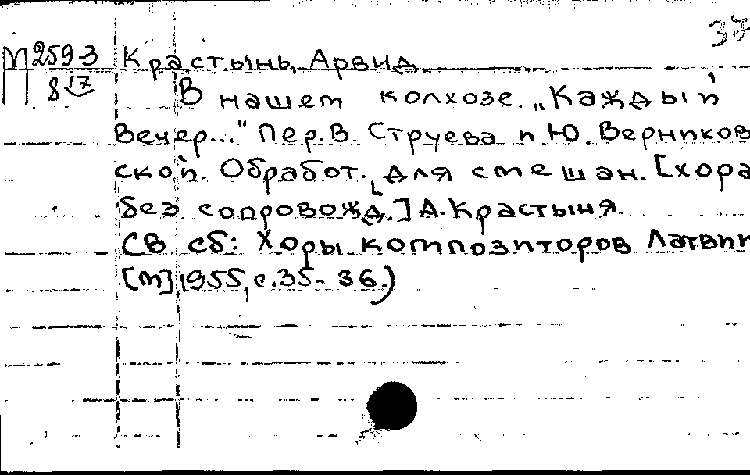 37
М 259-3 Крастынь, Арвид
П 8 17 В нашем колхозе. „Каждый
вечер..." Пер. В. Струева и Ю. Верников
ской. Обработ. для смешан. [хора
без сопровожд.] А. Крастыня.
(В сб: Хоры композиторов Латвии
[М] 1955, с. 35-36.)